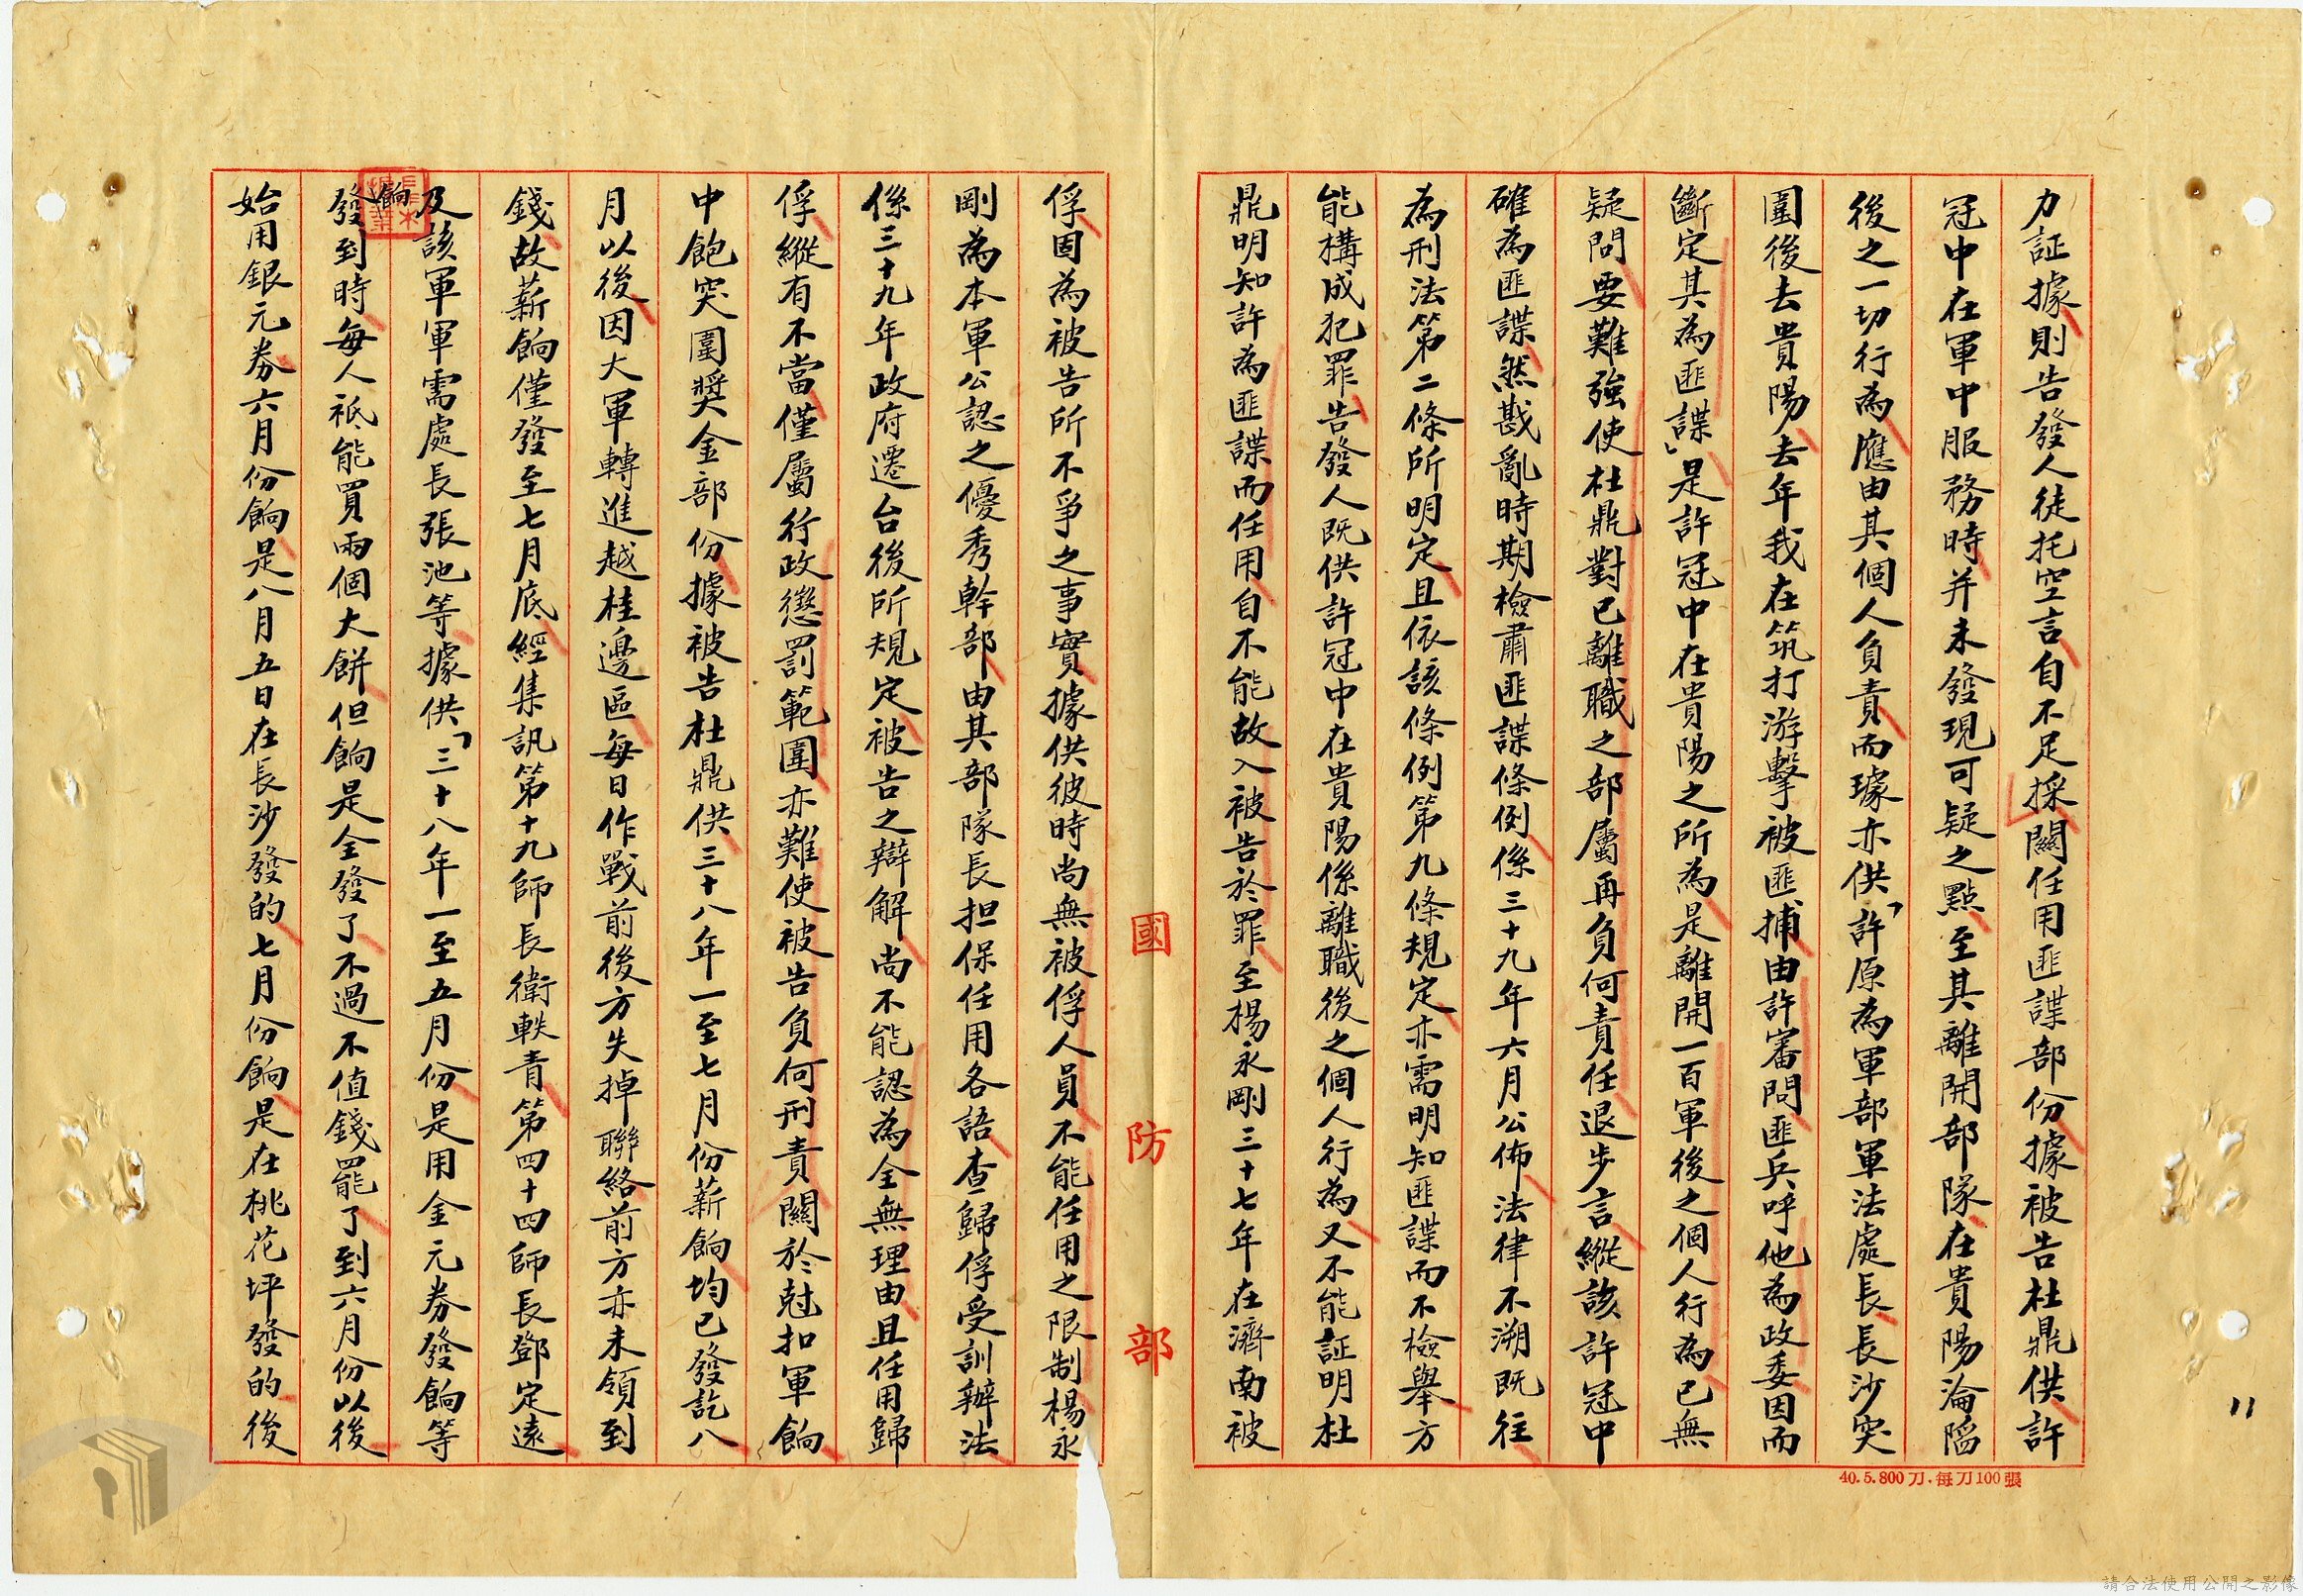 力証據則告發人徒托空言自不足採關任用匪諜部份據被告杜鼎供許
冠中在軍中服務時并未發現可疑之點至其離開部隊在貴陽淪陷
後之一切行為應由其個人負責而璩亦供「許原為軍部軍法處長長沙突
圍後去貴陽去年我在筑打游擊被匪捕由許審問匪兵呼他為政委因而
斷定其為匪諜」是許冠中在貴陽之所為是離開一百軍後之個人行為已無
疑問要難強使杜鼎對已離職之部屬再負何責任退步言縱該許冠中
確為匪諜然戡亂時期檢肅匪諜條例係三十九年六月公佈法律不溯既往
為刑法第二條所明定且依該條例第九條規定亦需明知匪諜而不檢舉方
能構成犯罪告發人既供許冠中在貴陽係離職後之個人行為又不能証明杜
鼎明知許為匪諜而任用自不能故入被告於罪至楊永剛三十七年在濟南被
國防部
俘固為被告所不爭之事實據供彼時尚無被俘人員不能任用之限制楊永
剛為本軍公認之優秀幹部由其部隊長担保任用各語查歸俘受訓辦法
係三十九年政府遷台後所規定被告之辯解尚不能認為全無理由且任用歸
俘縱有不當僅屬行政懲罰範圍亦難使被告負何刑責關於尅扣軍餉
中飽突圍獎金部份據被告杜鼎供三十八年一至七月份薪餉均已發訖八
月以後因大軍轉進越桂邊區每日作戰前後方失掉聯絡前方亦未領到
錢故薪餉僅發至七月底經集訊第十九師長衛軼青第四十四師長鄧定遠
及該軍軍需處長張池等據供「三十八年一至五月份是用金元券發餉等
餉
發到時每人祗能買兩個大餅但餉是全發了不過不值錢罷了到六月份以後
始用銀元券六月份餉是八月五日在長沙發的七月份餉是在桃花坪發的後
11
40.5.800刀.每刀100張
請合法使用公開之影像